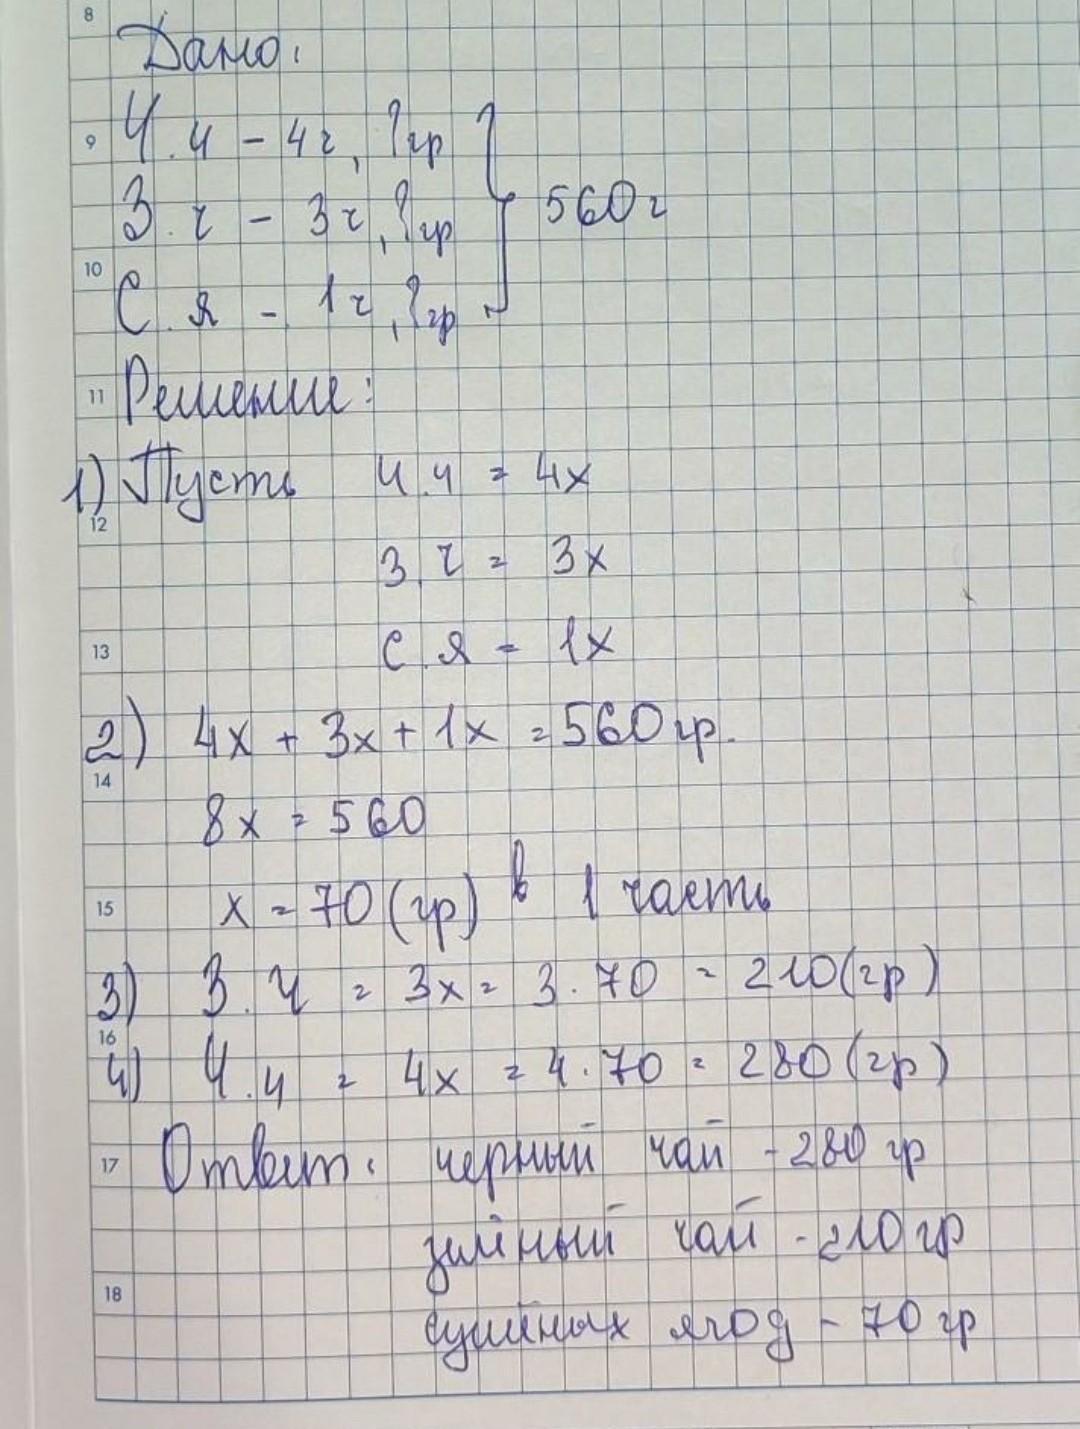 8
Дано:
9
Ч.ч - 4ч, ?гр
З.ч - 3ч, ?гр
560г
10
С.я - 1ч, ?гр
11
Решение:
1) Пусть ч.ч = 4x
12
З.ч = 3x
13
С.я = 1x
2) 4x + 3x + 1x = 560гр.
14
8x = 560
15
x = 70 (гр) в 1 часть
3) З.ч = 3x = 3·70 = 210 (гр)
16
4) Ч.ч = 4x = 4·70 = 280 (гр)
17
Ответ: черный чай - 280 гр
зелёный чай - 210 гр
18
сушёных ягод - 70 гр